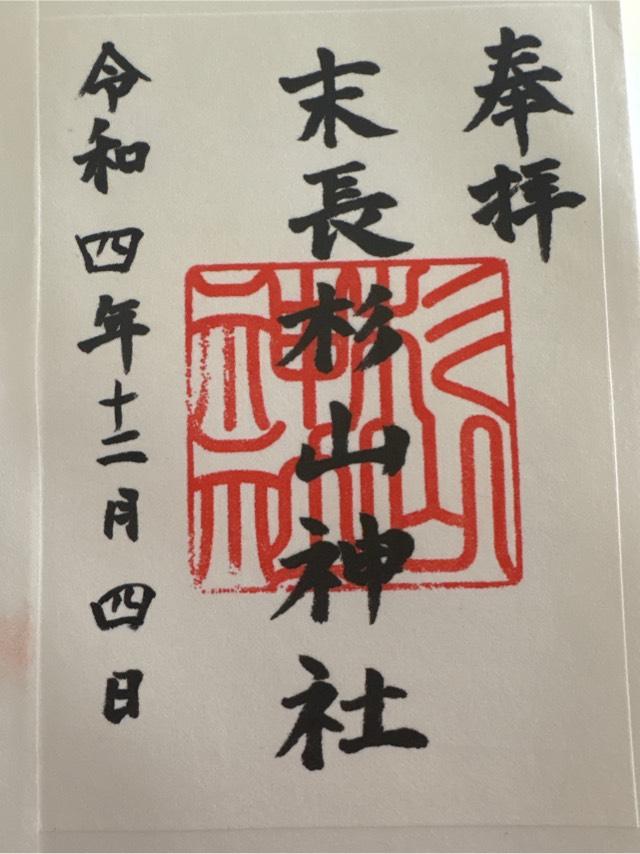 奉拝
末長杉山神社
杉山神社
令和四年十二月四日